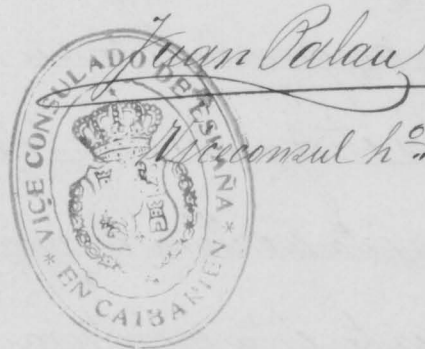 Juan Palau
Viceconsul hº
* VICE CONSULADO DE ESPAÑA *
EN CAIBARIEN